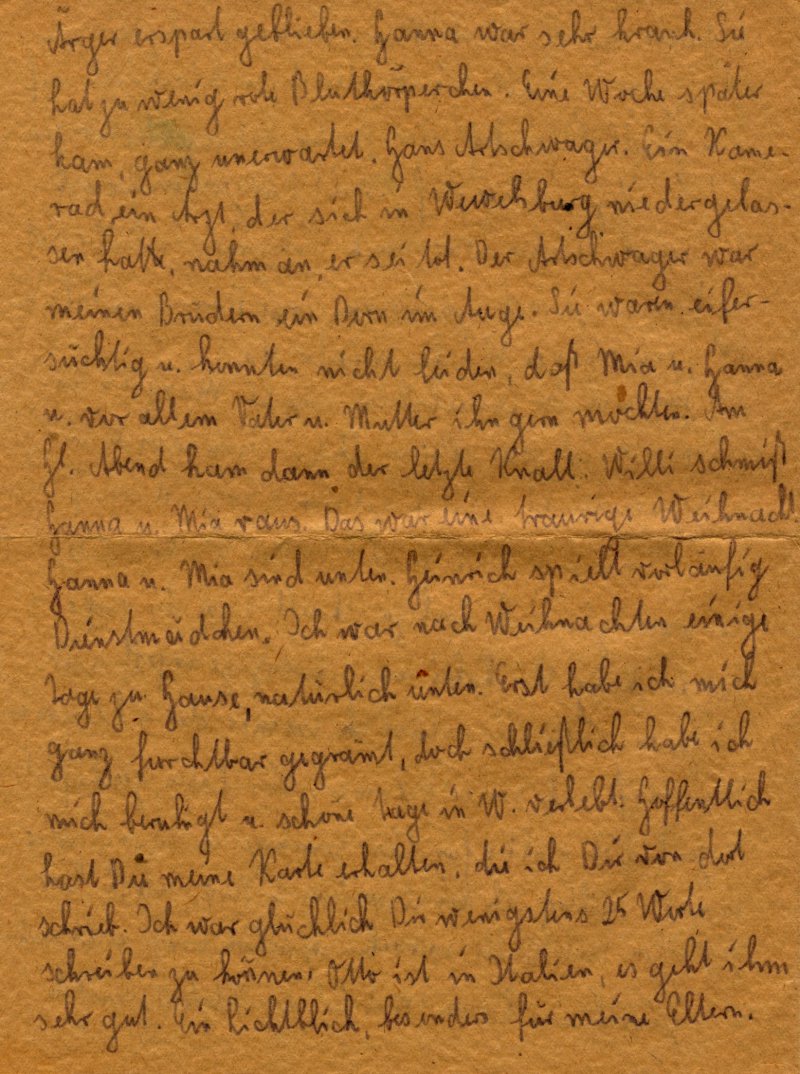 Ärger erspart geblieben. Hanna war sehr krank. Sie
hat zu wenig rote Blutkörperchen. Eine Woche später
kam, ganz unerwartet, Hans Artschwager. Ein Kame-
rad, ein Arzt, der sich in Wewelsburg niedergelas-
sen hatte, nahm an, er sei tot. Der Artschwager war
meinen Brüdern ein Dorn im Auge. Sie waren eifer-
süchtig u. konnten nicht leiden, daß Mia u. Hanna
u. vor allem Vater u. Mutter ihn gern mochten. Am
Hl. Abend kam dann der letzte Knall. Willi schmißt
Hanna u. Mia raus. Das war eine traurige Weihnacht.
Hanna u. Mia sind unten. Heinrich spielt vorläufig
Dienstmädchen. Ich war nach Weihnachten einige
Tage zu Hause, natürlich unten. Erst habe ich mich
ganz furchtbar gegrämt, doch schließlich habe ich
mich beruhigt u. schöne Tage in W. verlebt. Hoffentlich
hast Du meine Karte erhalten, die ich Dir von dort
schrieb. Ich war glücklich Dir wenigstens 25 Worte
schreiben zu können. Otto ist in Italien, es geht ihm
sehr gut. Ein Lichtblick, besonders für meine Eltern.